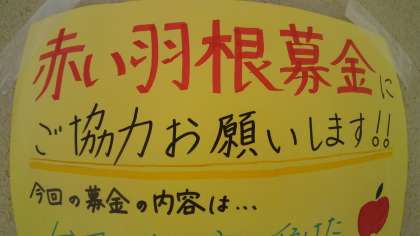 赤い羽根募金に
ご協力お願いします!!
今回の募金の内容は...